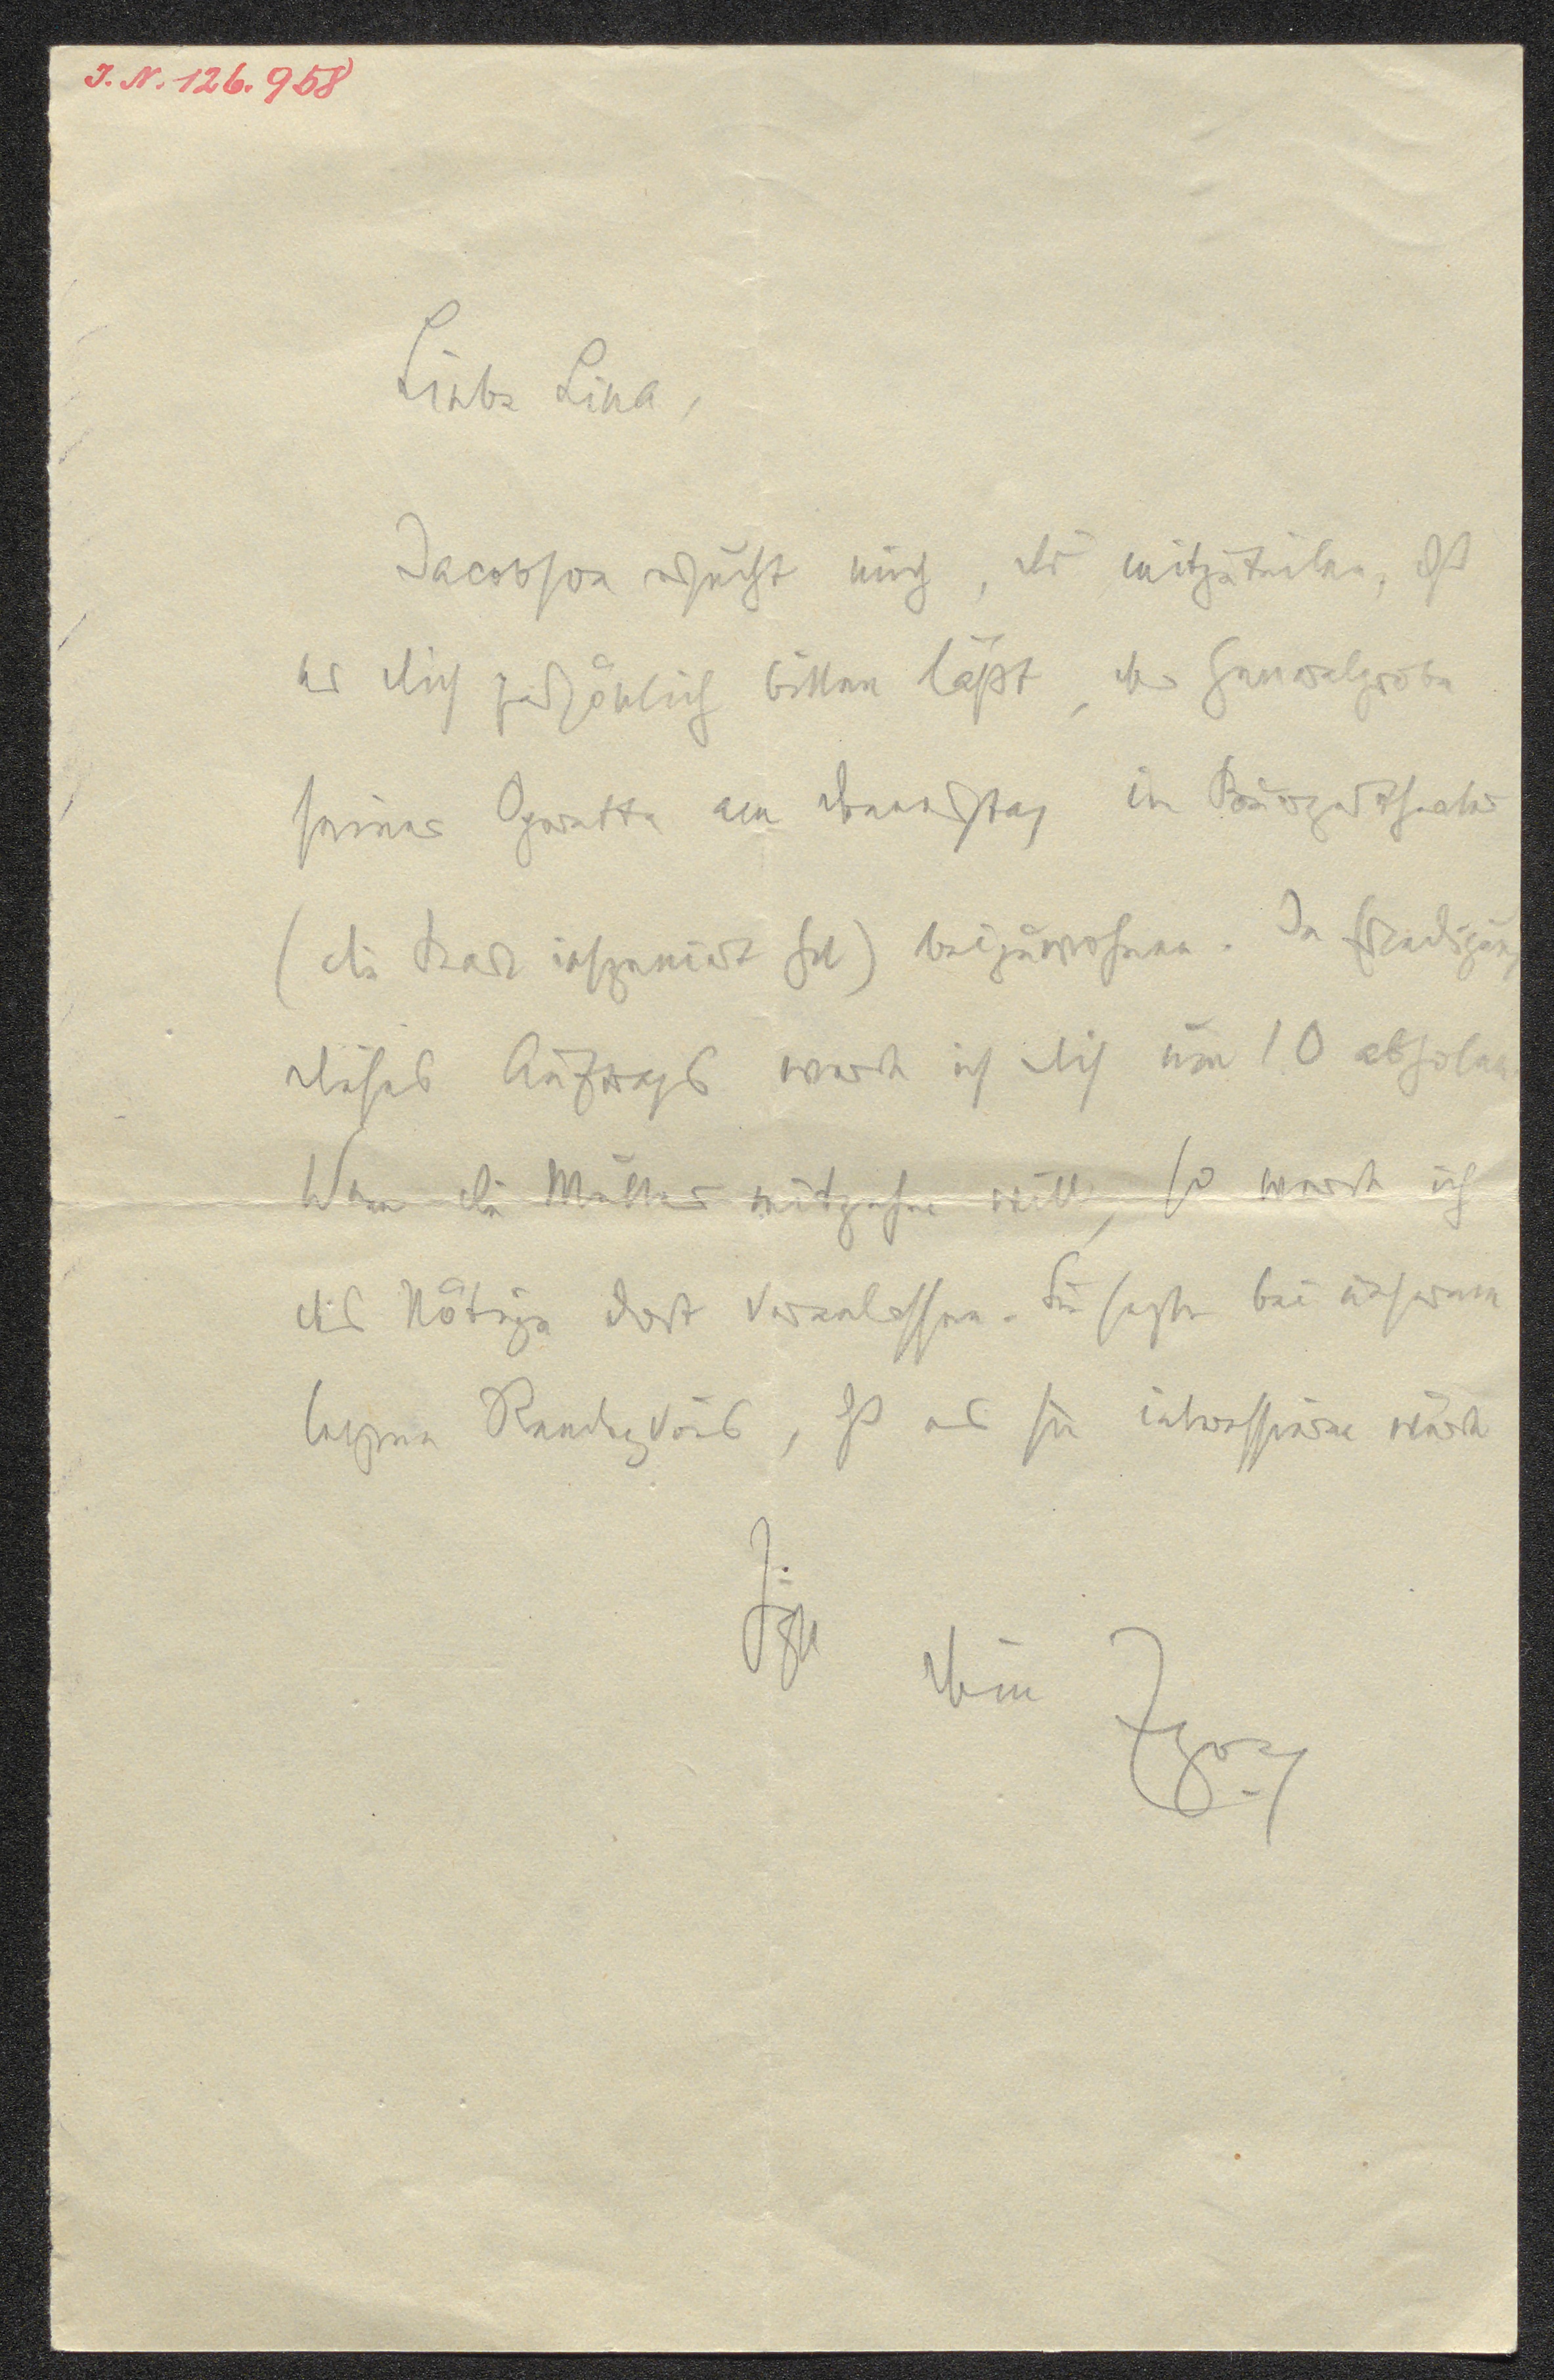 J. N. 126.958
Liebe Lina,
Jacobson ersucht mich, dir mitzuteilen, dß
er dich persönlich bitten läßt, der Generalprobe
seiner Operette am Dienstag im Bürgertheater
(die inszeniert hat) beizuwohnen. In Erledigung
dieses Auftrags werde ich dich um 10 abholen.
Wenn die Mutter mitgehen will, so werde ich
das Nötige dort veranlassen. Sie sagte bei unserem
letzten Rendezvous, dß es sie interessieren würde
Dein